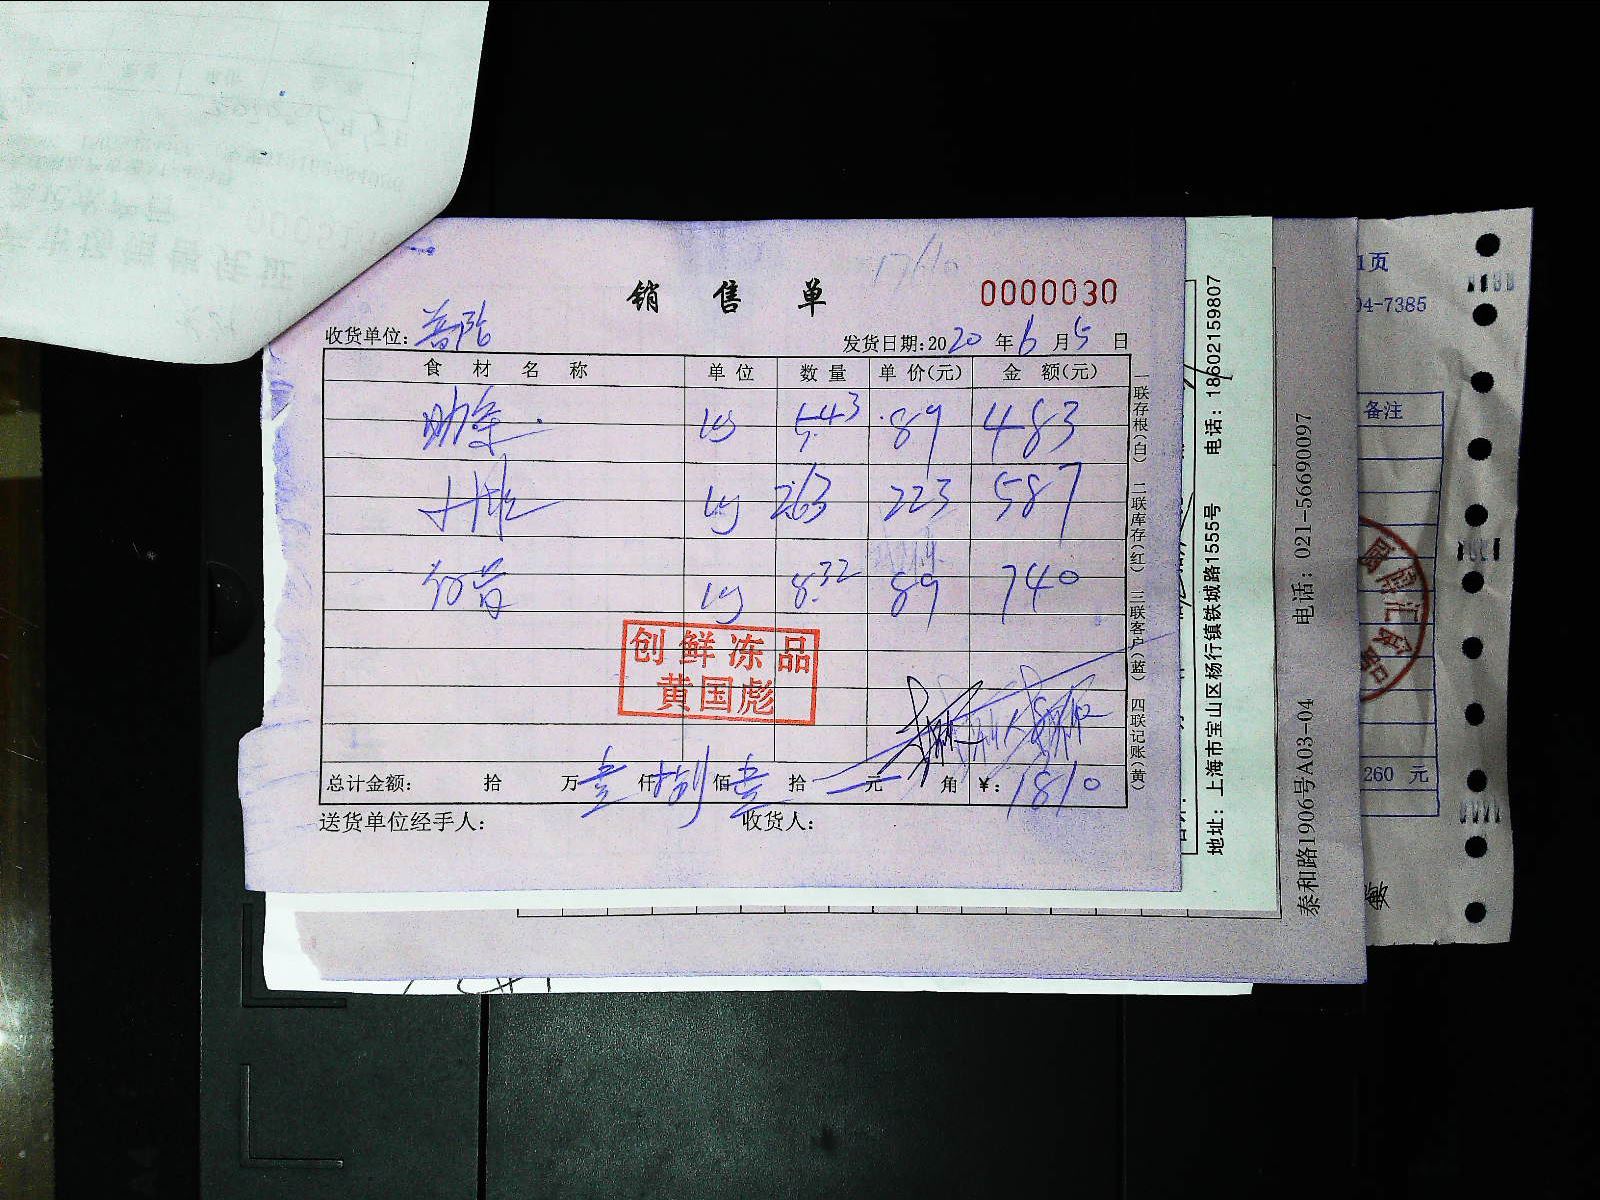 销 售 单
0000030
收货单位: 普陀
发货日期: 2020 年 6 月 5 日
食 材 名 称 单 位 数 量 单 价(元) 金 额(元)
肋条 kg 5.43 89 483
kg 2.63 223 587
kg 8.32 89 740
创鲜冻品
黄国彪
总计金额: 拾 万 壹 仟 捌 佰 壹 拾 元 角 ¥: 1810
送货单位经手人: 收货人:
一联存根(白) 二联库存(红) 三联客户(蓝) 四联记账(黄)
地址: 上海市宝山区杨行镇铁城路1555号 电话: 18602159807
泰和路1906号A03-04 电话: 021-56690097
1页
04-7385
备注
260 元